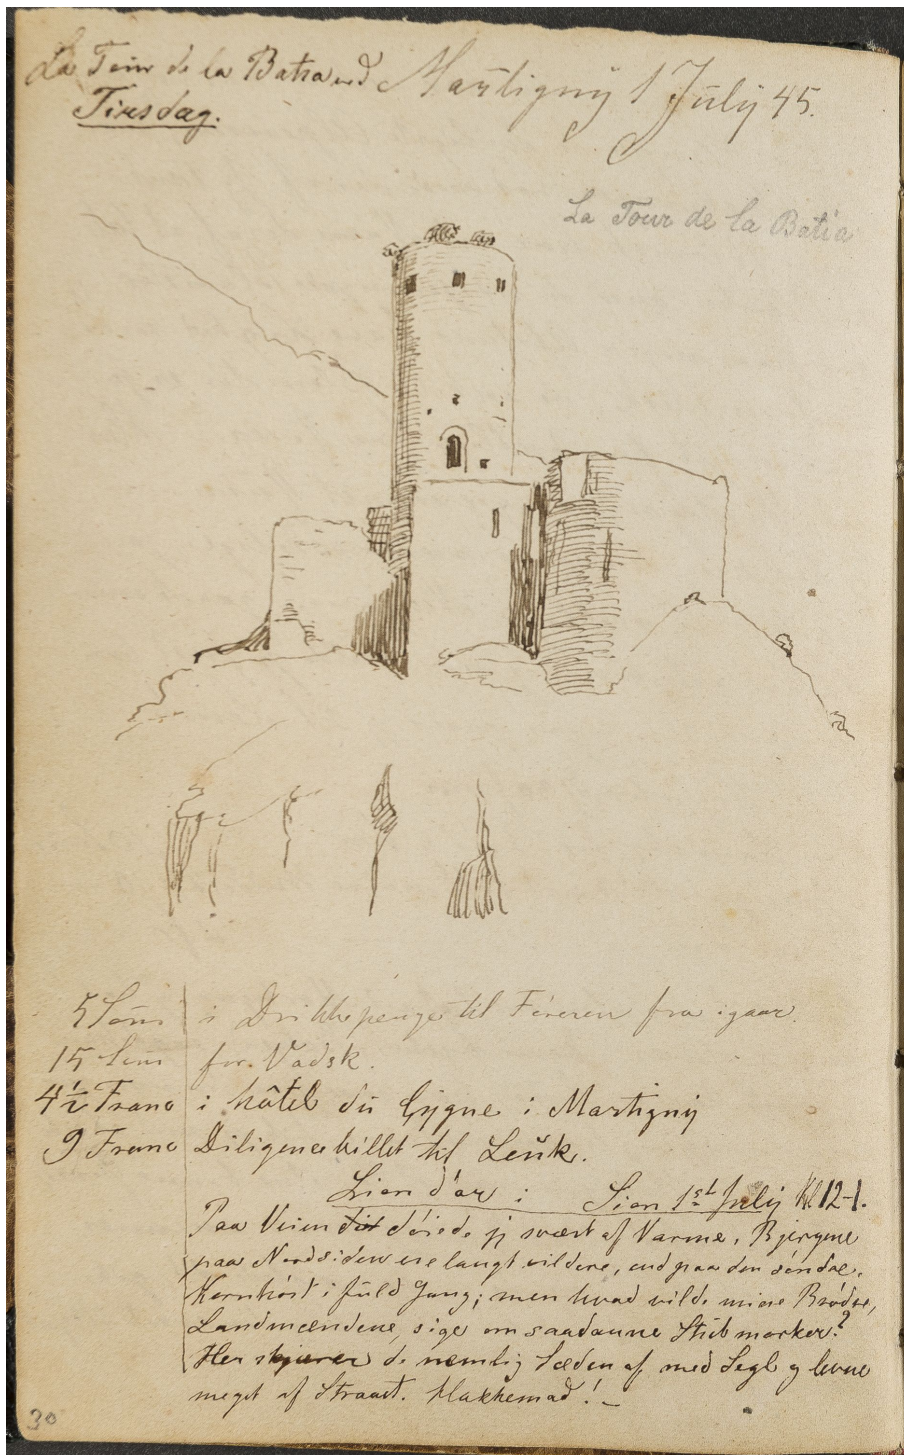 La Tour de la Batia ved Martigny 1 July 45.
Tirsdag.
La Tour de la Batia
5 Sous i Drikkepenge til Føreren fra igaar.
15 Sous for Vadsk.
4½ Franc i hôtel du Cygne i Martigny
9 Franc Diligencebillet til Leuk.
Lion d'or i Sion 1st July Kl. 12-1.
Paa Veien døiede jeg svært af Varme, Bjergene
paa Nordsiden ere langt vildere, end paa den søndre.
Kornhøst i fuld Gang; men hvad vilde mine Brødre,
Landmændene, sige om saadanne Stubmarker?
Her skjærer de nemlig Sæden af med Segl og levne
meget af Straaet. Hakkemad!
30